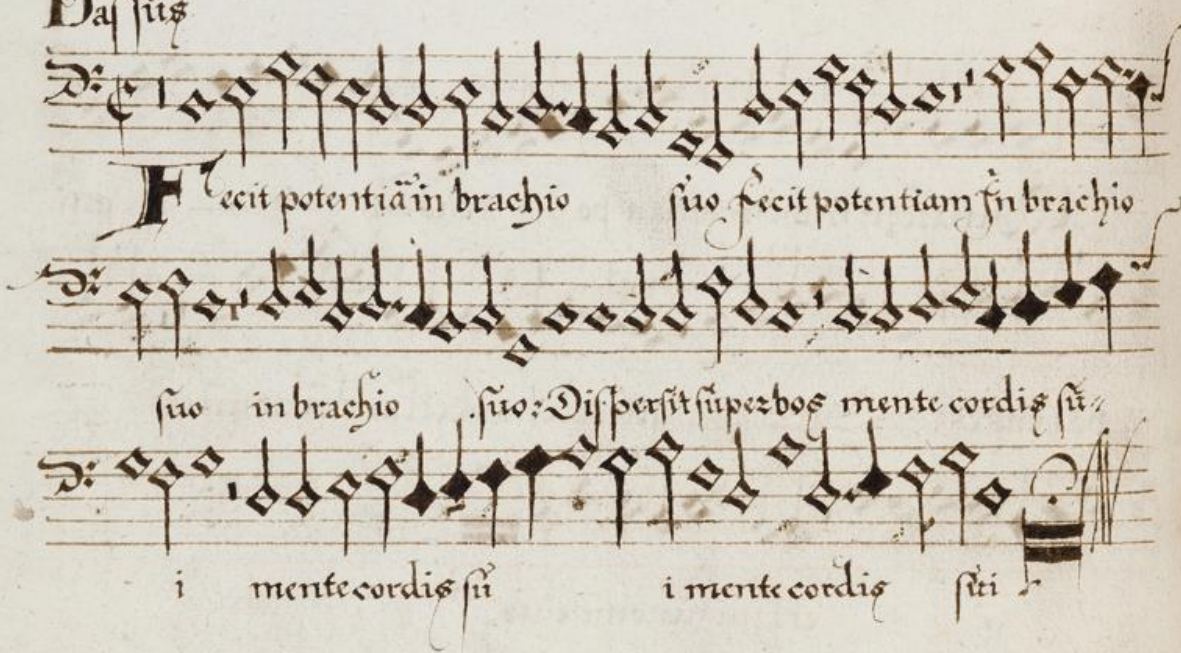 Bassus
Fecit potentiā in brachio suo Fecit potentiam In brachio
suo in brachio suo: Dispersit superbos mente cordis su-
i mente cordis su i mente cordis sui